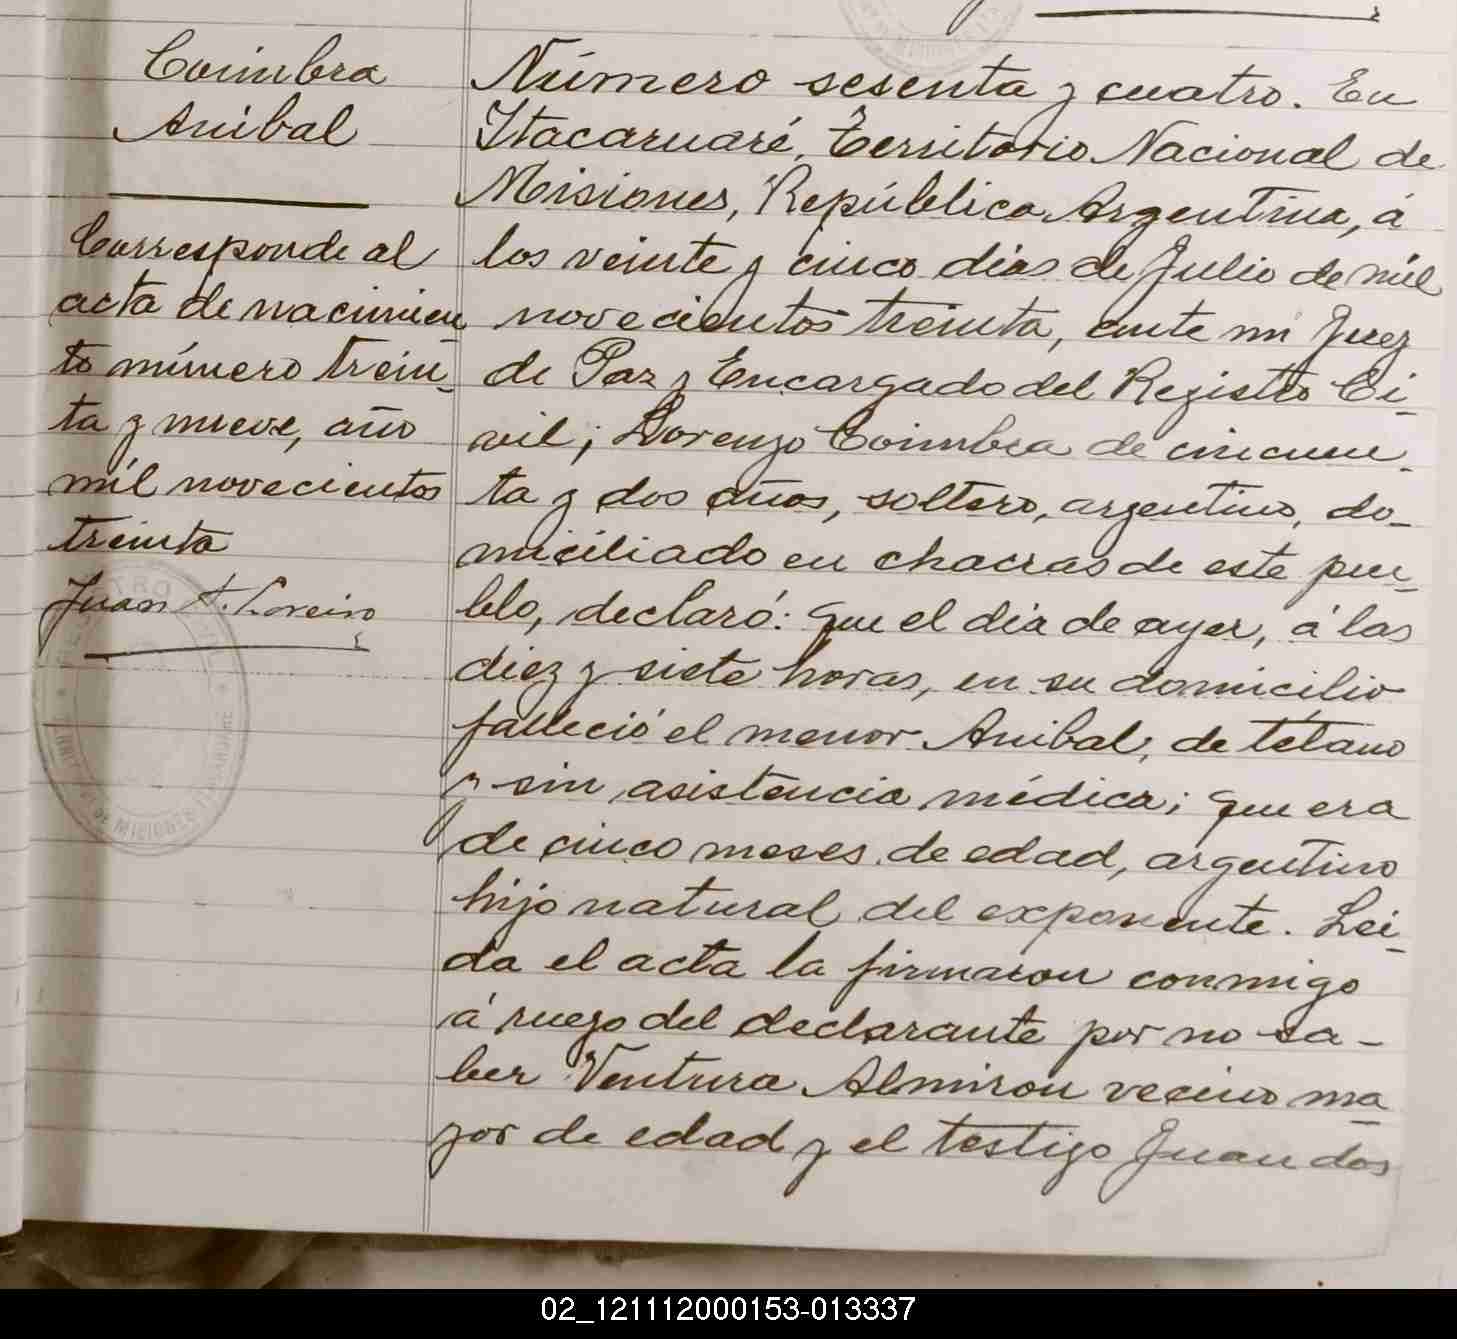 Coimbra
Anibal
Corresponde al
acta de nacimien
to número trein_
ta y nueve, año
mil novecientos
treinta
Juan A. Loreiro
Número sesenta y cuatro. En
Itacaruaré, Territorio Nacional de
Misiones, República Argentina, á
los veinte y cinco dias de Julio de mil
novecientos treinta, ante mi Juez
de Paz y Encargado del Registro Ci_
vil; Lorenzo Coimbra de cincuen_
ta y dos años, soltero, argentino, do_
miciliado en chacras de este pue_
blo, declaró: que el dia de ayer, á las
diez y siete horas, en su domicilio
falleció el menor Anibal, de tétano
y sin asistencia médica; que era
de cinco meses de edad, argentino
hijo natural del exponente. Lei_
da el acta la firmaron conmigo
á ruego del declarante por no sa_
ber Ventura Almiron vecino ma_
yor de edad y el testigo Juan dos
02_121112000153-013337